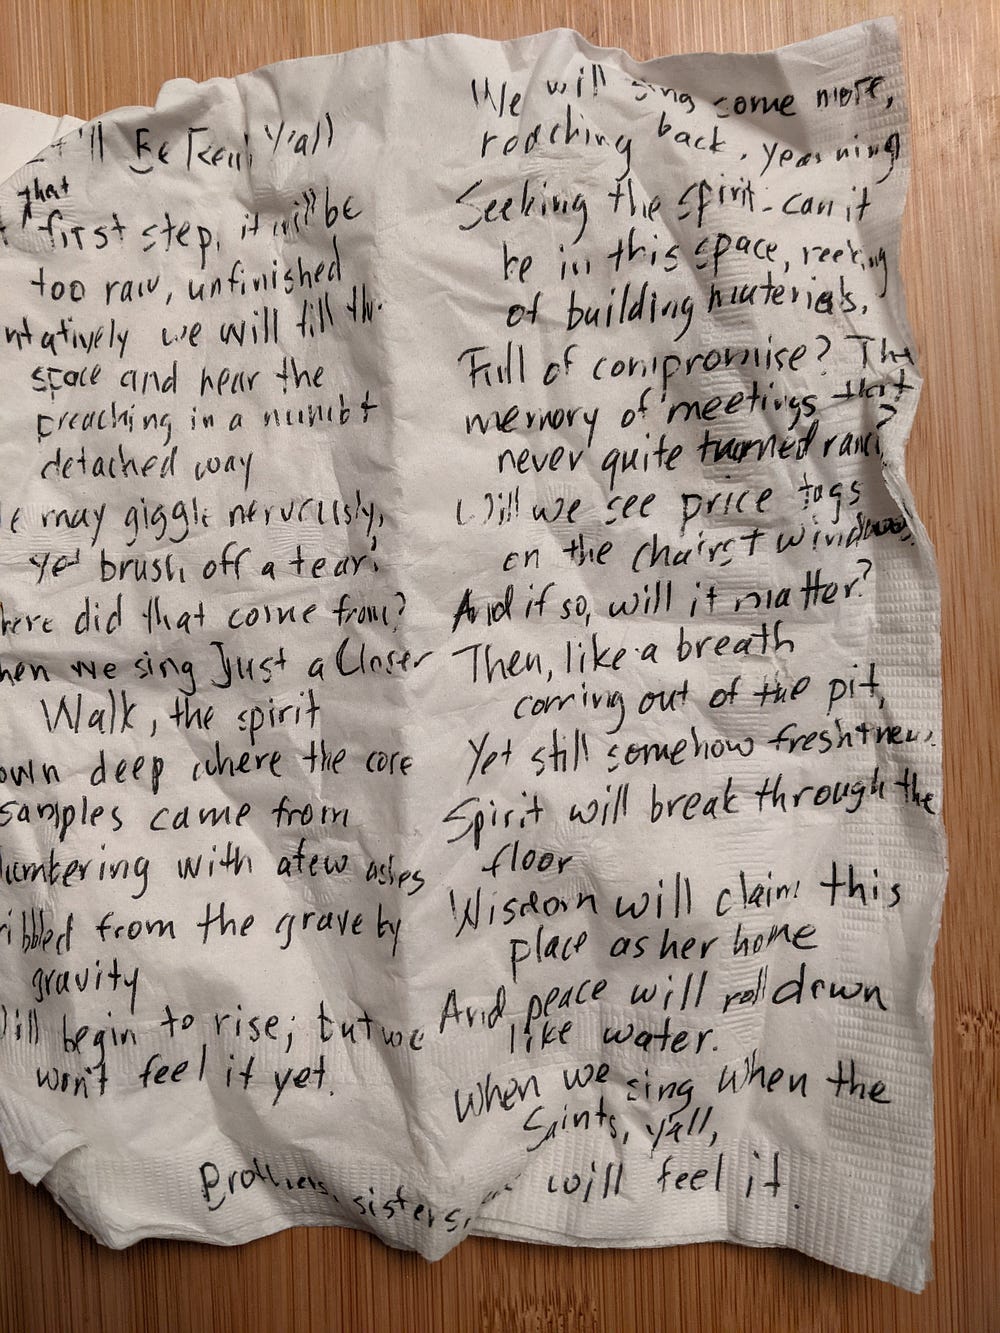 Be Real Y'all
that
first step, it will be
too raw, unfinished
ntatively we will fill the
space and hear the
preaching in a numb +
detached way
e may giggle nervously,
yet brush off a tear:
here did that come from?
hen we sing Just a Closer
Walk, the spirit
own deep where the core
samples came from
lumbering with a few ashes
ribbled from the grave by
gravity
ill begin to rise; but we
won't feel it yet.
We will sing some more,
reaching back, yearning
Seeking the spirit - can it
be in this space, reeking
of building materials,
Full of compromise? The
memory of meetings that
never quite turned
Will we see price tags
on the chairs + windows?
And if so, will it matter?
Then, like a breath
coming out of the pit,
Yet still somehow fresh + new,
Spirit will break through the
floor
Wisdom will claim this
place as her home
And peace will roll down
like water.
When we sing When the
Saints, y'all,
Brothers, sisters,
will feel it.